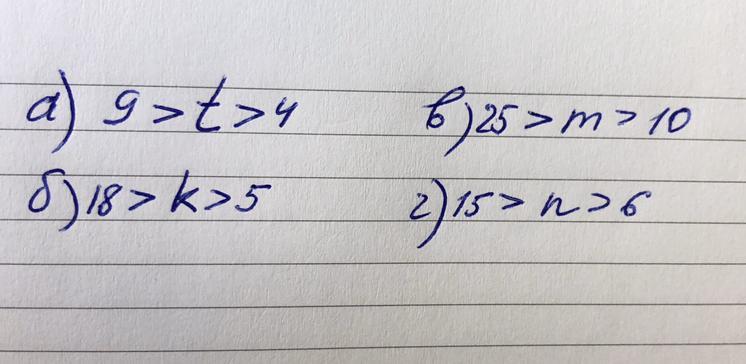 а) 9 > t > 4 в) 25 > m > 10
б) 18 > k > 5 г) 15 > n > 6